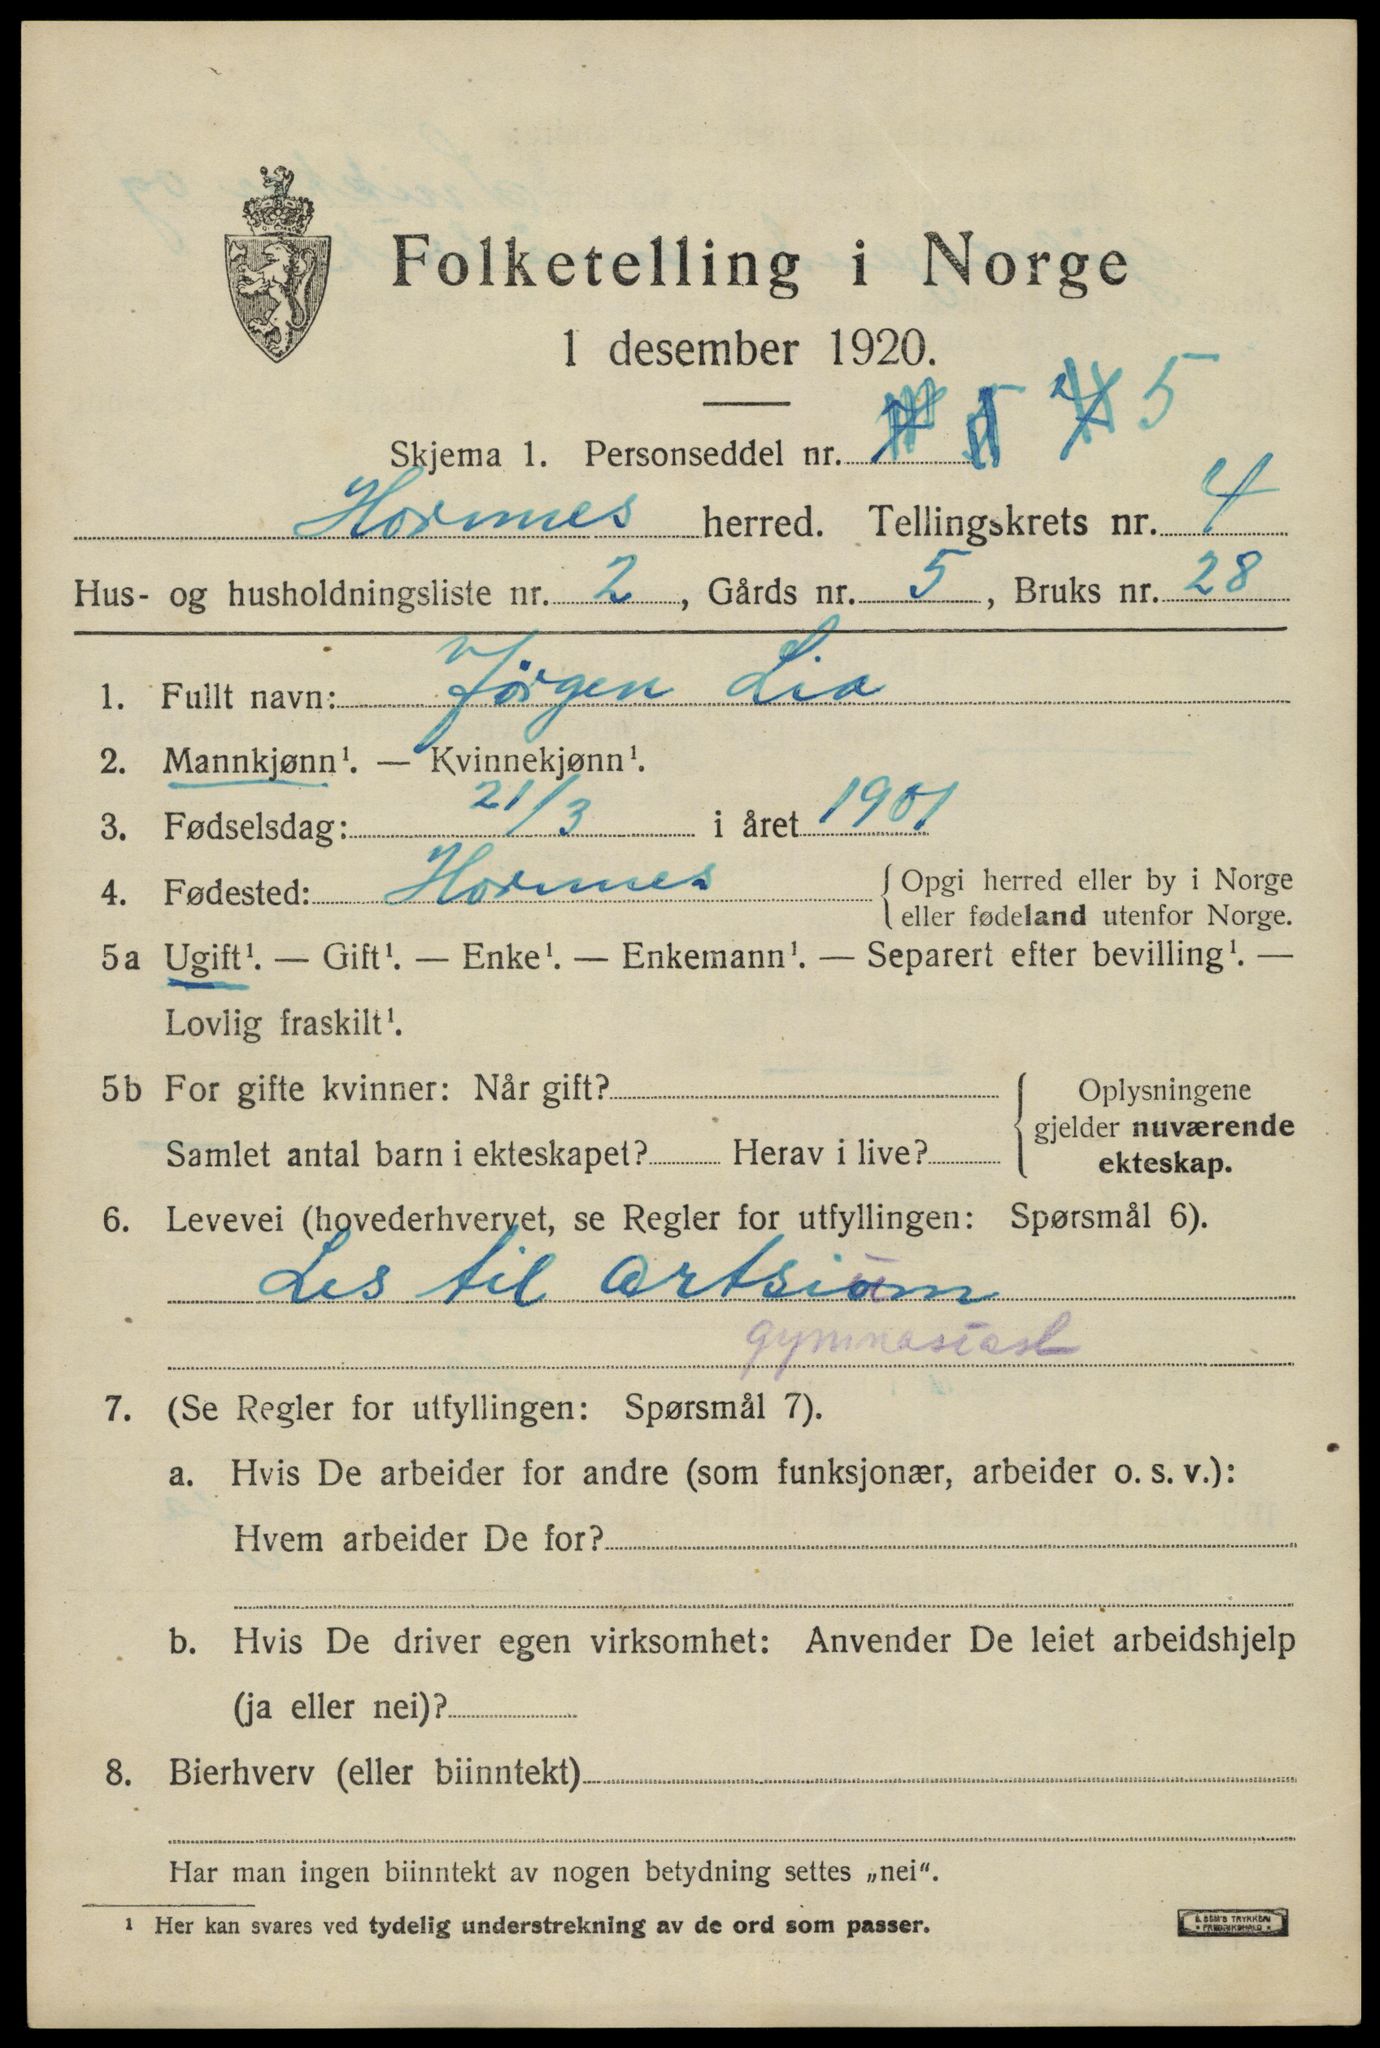 Folketelling i Norge
1 desember 1920.
Skjema 1. Personseddel nr. 5
Hornnes herred. Tellingskrets nr. 4
Hus- og husholdningsliste nr. 2, Gårds nr. 5, Bruks nr. 28
1. Fullt navn: Jørgen Lia
2. Mannkjønn¹. — Kvinnekjønn¹.
3. Fødselsdag: 21/3 i året 1901
4. Fødested: Hornnes { Opgi herred eller by i Norge
eller fødeland utenfor Norge.
5a Ugift¹. — Gift¹. — Enke¹. — Enkemann¹. — Separert efter bevilling¹. —
Lovlig fraskilt¹.
5b For gifte kvinner: Når gift?
Samlet antal barn i ekteskapet? Herav i live?
{ Oplysningene
gjelder nuværende
ekteskap.
6. Levevei (hovederhvervet, se Regler for utfyllingen: Spørsmål 6).
Les til artsium
gymnasiast
7. (Se Regler for utfyllingen: Spørsmål 7).
a. Hvis De arbeider for andre (som funksjonær, arbeider o. s. v.):
Hvem arbeider De for?
b. Hvis De driver egen virksomhet: Anvender De leiet arbeidshjelp
(ja eller nei)?
8. Bierhverv (eller biinntekt)
Har man ingen biinntekt av nogen betydning settes „nei“.
¹ Her kan svares ved tydelig understrekning av de ord som passer.
E. SEM'S TRYKKERI
* FREDRIKSHALD *